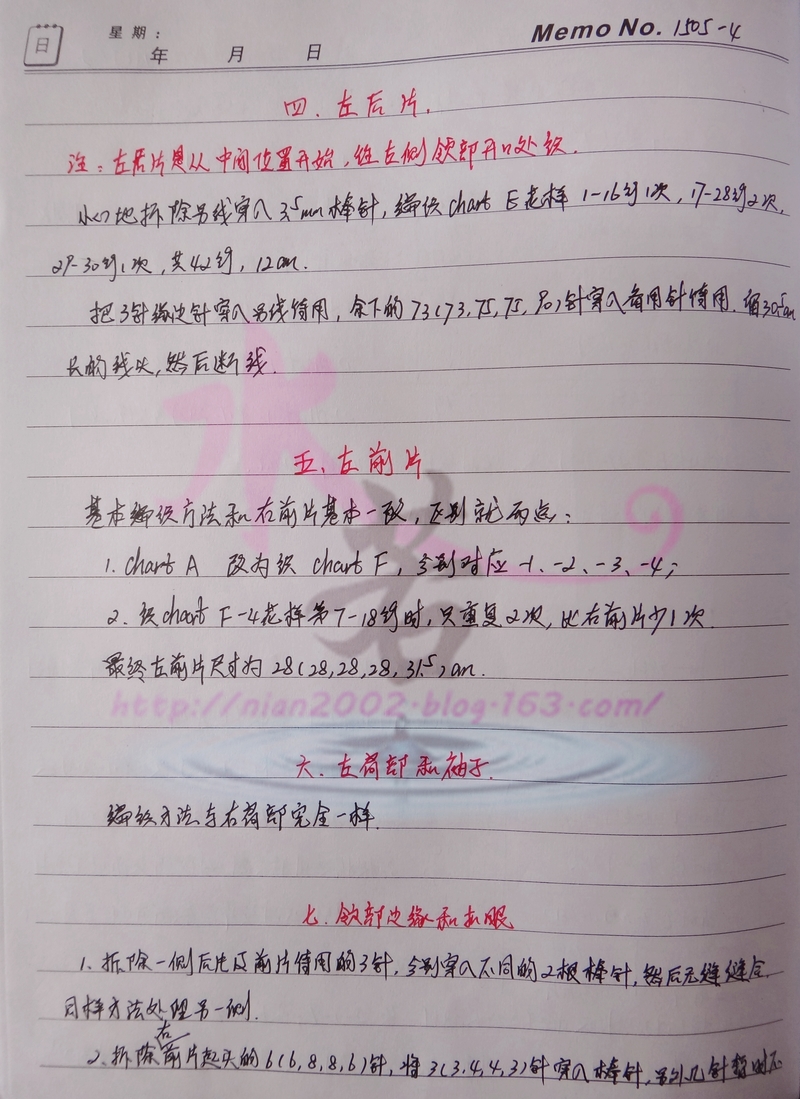 日
星期:
年 月 日
Memo No. 1505-4
四、左后片.
注:左后片是从中间位置开始,往左侧领部开口处织.
小心地拆除另线穿入3.5mm棒针,编织chart E花样1-16行1次,17-28行2次,
29-30行1次,共42行,12cm.
把3针缘边针穿入另线待用,余下的73(73,75,75,80)针穿入备用针待用.留30.5cm
长的线头,然后断线.
五、左前片
基本编织方法和右前片基本一致,区别就两点:
1. chart A 改为织 chart F,分别对应-1、-2、-3、-4;
2. 织chart F-4花样第7-18行时,只重复2次,比右前片少1次.
最终左前片尺寸为28(28,28,28,31.5)cm.
http://nian2002.blog.163.com/
六、左肩部和袖子.
编织方法与右肩部完全一样.
七、领部边缘和扣眼
1、拆除一侧后片及前片待用的3针,分别穿入不同的2根棒针,然后无缝缝合.
同样方法处理另一侧.
2、拆除右前片起头的6(6,8,8,6)针,将3(3,4,4,3)针穿入棒针,另外几针暂时不